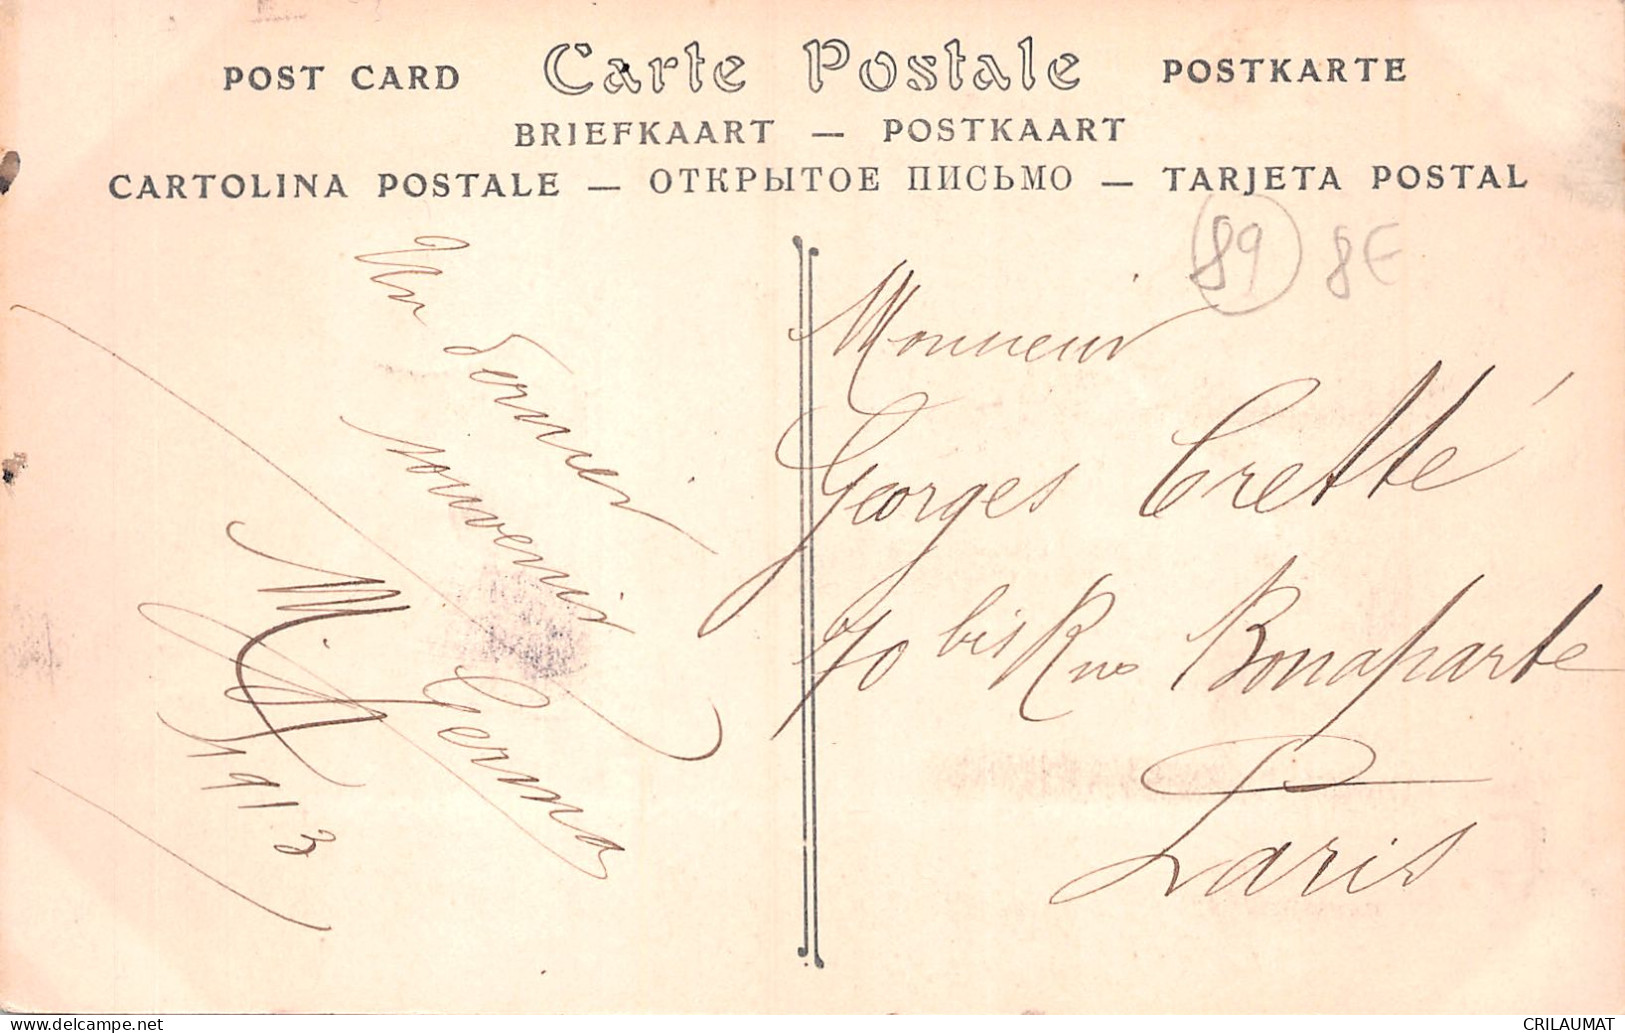 POST CARD Carte Postale POSTKARTE
BRIEFKAART — POSTKAART
CARTOLINA POSTALE — ОТКРЫТОЕ ПИСЬМО — TARJETA POSTAL
89 8E
Un dernier
souvenir
1913
Monsieur
Georges Cretté
70 bis Rue Bonaparte
Paris
CRILAUMAT